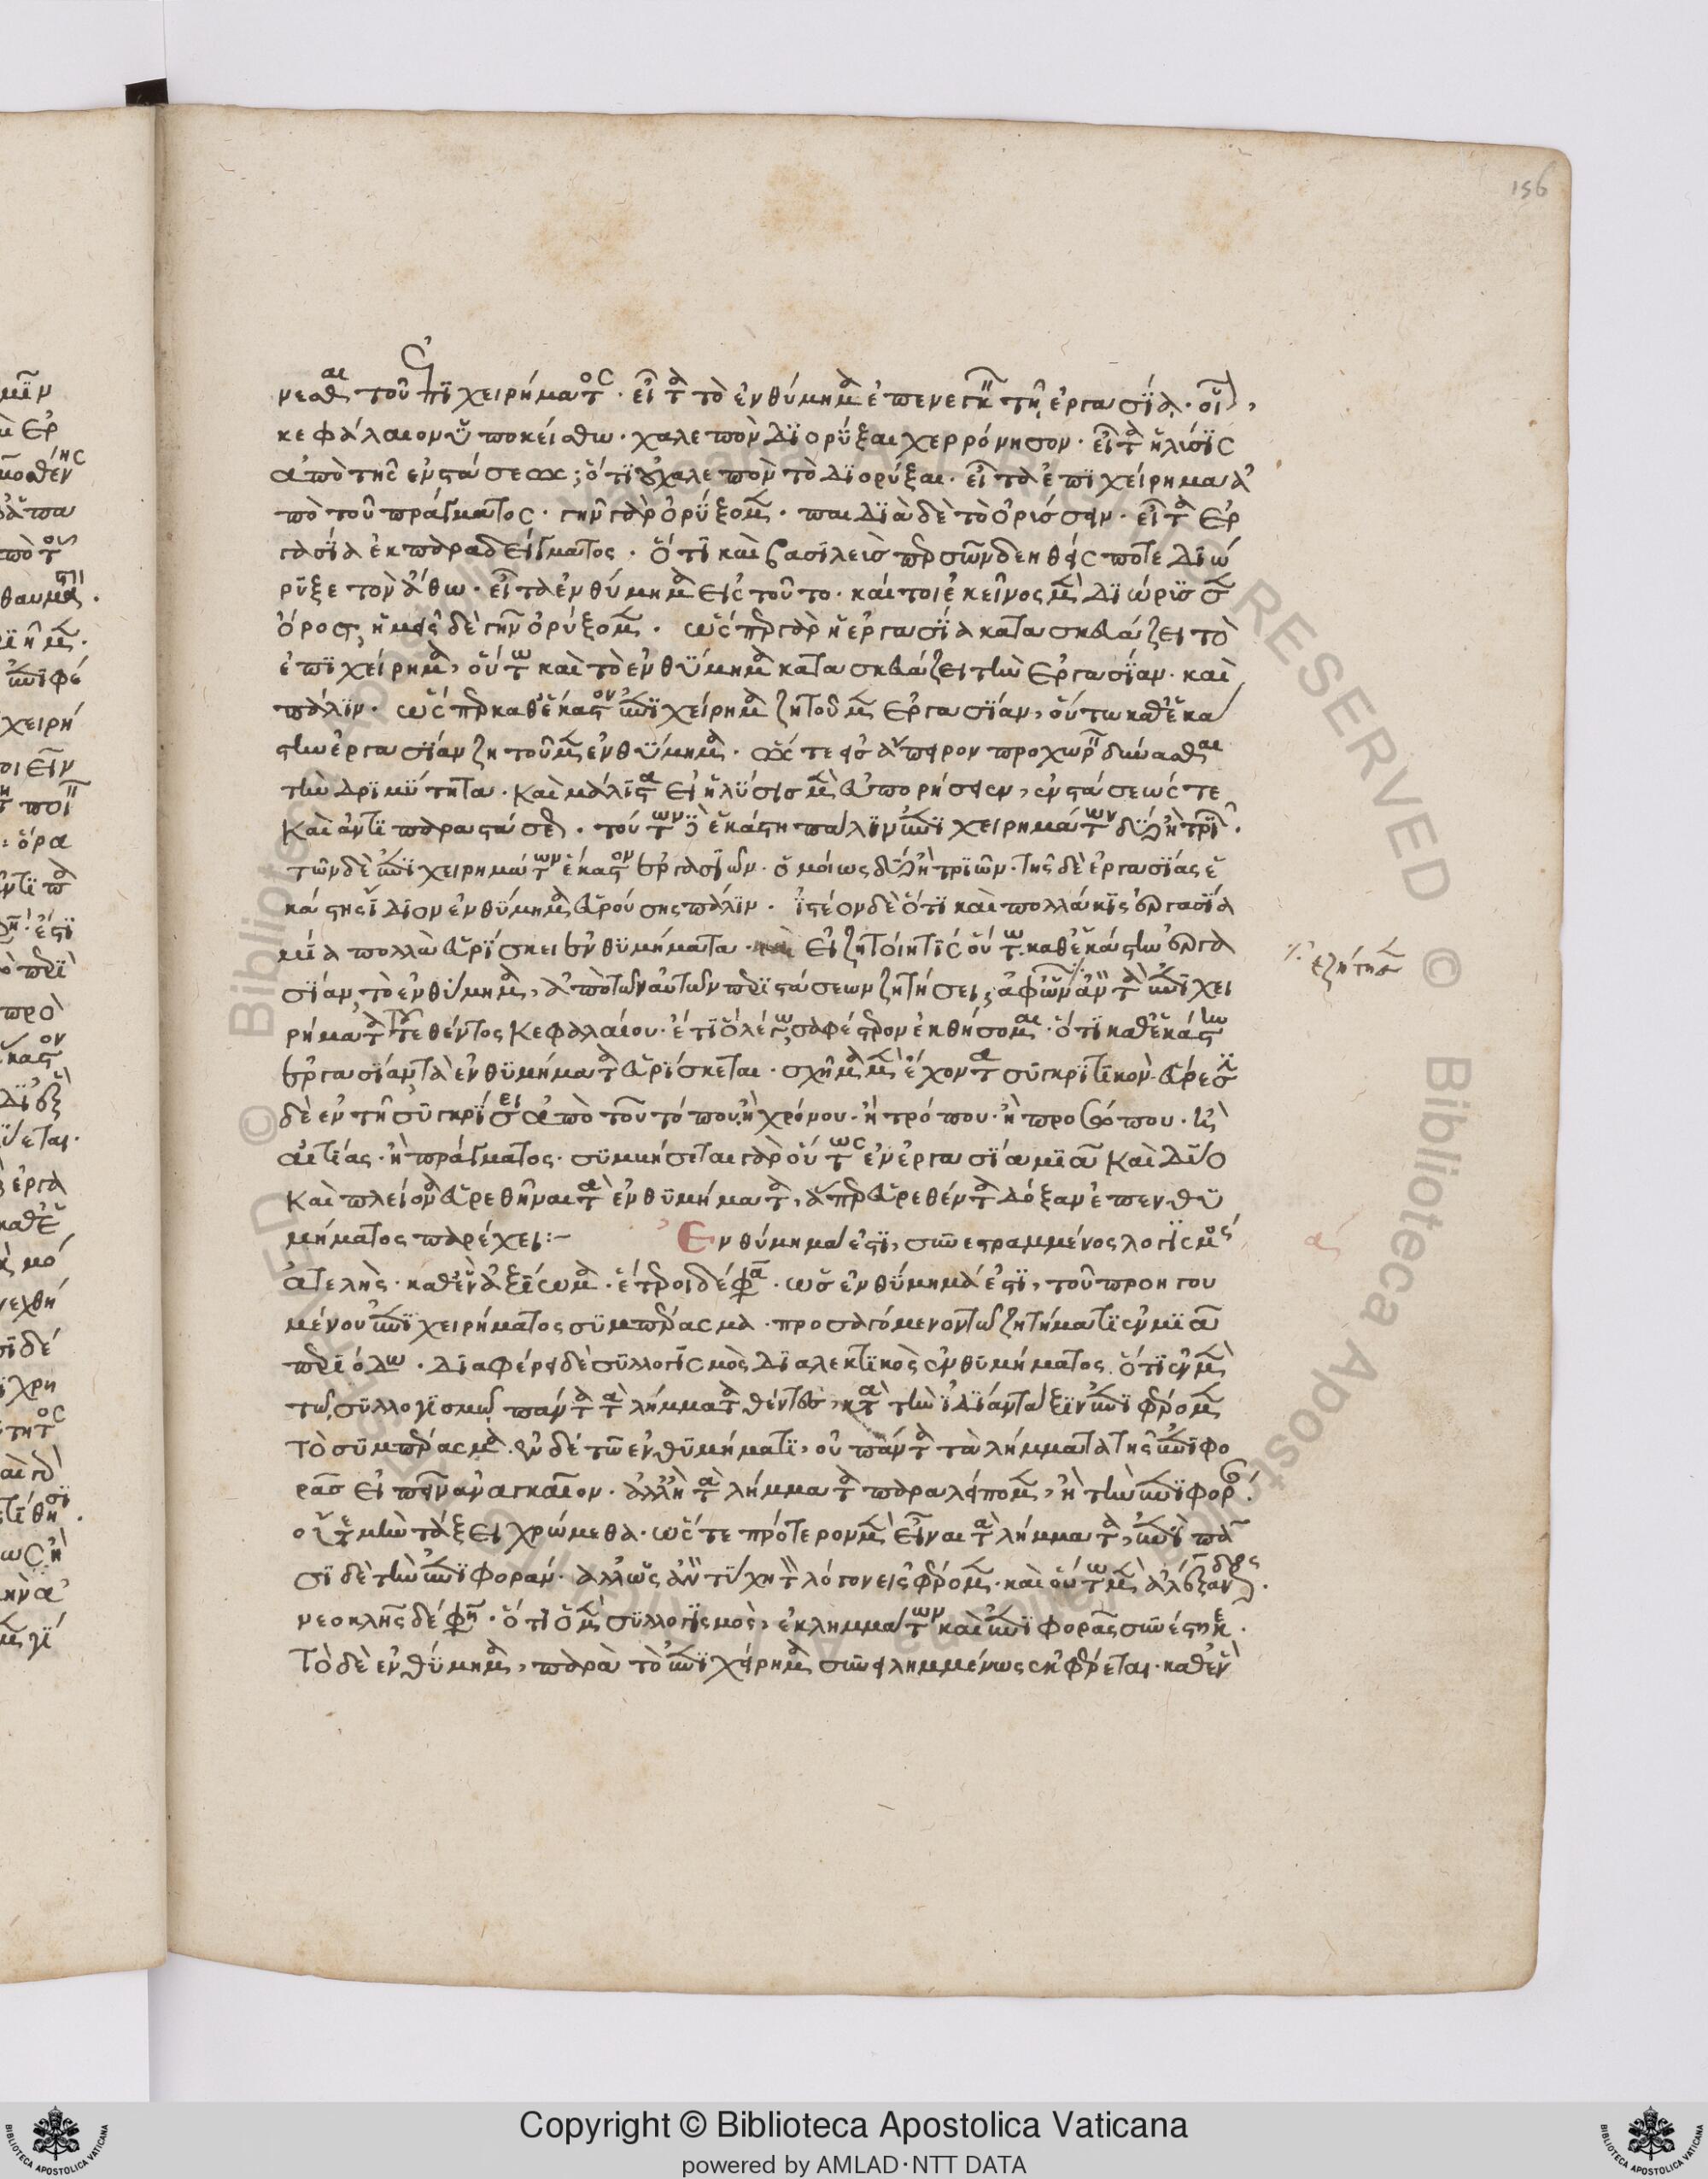 156
νεσθαι τοῦ ἐπιχειρήματος · εἶτα τὸ ἐνθύμημα ἐπενεγκεῖν τῇ ἐργασίᾳ · οἷον,
κεφάλαιον ὑποκείσθω · χαλεπὸν διορύξαι χερρόνησον · εἶτα ἡ λύσις
ἀπὸ τῆς ἐνστάσεως· ὅτι οὐ χαλεπὸν τὸ διορύξαι · εἶτα ἐπιχείρημα ἀ
πὸ τοῦ πράγματος · γῆν γὰρ ὀρύξομεν · παιδιὰ δὲ τὸ ὀρύσσειν · εἶτα ἐρ
γασία ἐκ παραδείγματος · ὅτι καὶ βασιλεὺς περσῶν δεηθείς ποτε διώ
ρυξε τὸν ἄθω · εἶτα ἐνθύμημα εἰς τοῦτο · καίτοι ἐκεῖνος μὲν διώρυσσεν
ὄρος, ἡμεῖς δὲ γῆν ὀρύξομεν · ὥσπερ γὰρ ἡ ἐργασία κατασκευάζει τὸ
ἐπιχείρημα, οὕτω καὶ τὸ ἐνθύμημα κατασκευάζει τὴν ἐργασίαν · καὶ
πάλιν · ὥσπερ καθ' ἕκαστον ἐπιχείρημα ζητοῦμεν ἐργασίαν, οὕτω καθ' ἑκά
στην ἐργασίαν ζητοῦμεν ἐνθύμημα · ὥστε εἰς ἄπειρον προχωρεῖν δύνασθαι
τὴν δριμύτητα · καὶ μάλιστα εἰ ἡ λύσις μὲν εὐπορήσειεν, ἐνστάσεώς τε
καὶ ἀντιπαραστάσεως · τούτων δὲ ἑκάστη πάλιν ἐπιχειρημάτων δύο ἢ τριῶν ·
τῶν δὲ ἐπιχειρημάτων ἕκαστον ἐργασιῶν · ὁμοίως δύο ἢ τριῶν · τῆς δὲ ἐργασίας ἑ
κάστης ἴδιον ἐνθύμημα εὑρούσης πάλιν · ἰστέον δὲ ὅτι καὶ πολλάκις ἐργασία
μία πολλὰ εὑρίσκει ἐνθυμήματα · εἰ ζητοίη τις οὕτω καθ' ἑκάστην ἐργα
σίαν τὸ ἐνθύμημα, ἀπὸ τῶν αὐτῶν περιστάσεων ζητήσει, ἀφ' ὧν ἂν τὰ ἐπιχει
ρήματα τοῦ τεθέντος κεφαλαίου · ἔτι ὃ λέγω, σαφέστερον ἐκθήσομαι · ὅτι καθ' ἑκάστην
ἐργασίαν τὰ ἐνθυμήματα εὑρίσκεται · σχῆμα μὲν ἔχοντα συγκριτικόν · εὑρεθήσεται
δὲ ἐν τῇ συγκρίσει ἀπὸ τοῦ τόπου, ἢ χρόνου · ἢ τρόπου · ἢ προσώπου · ἢ
αἰτίας · ἢ πράγματος · συμβήσεται γὰρ οὕτως ἐν ἐργασίᾳ μιᾷ καὶ δύο
καὶ πλείονα εὑρεθῆναι τὰ ἐνθυμήματα, ἅπερ εὑρεθέντα δόξαν ἐπενθυ
μήματος παρέχει :–   Ἐνθύμημα ἐστὶ, συνεστραμμένος λογισμός
ἀτελής · καθ' ἓν ἀξίωμα · ἕτεροι δέ φασιν · ὡς ἐνθύμημά ἐστι, τοῦ προηγου
μένου ἐπιχειρήματος συμπέρασμα · προσαγόμενον τῷ ζητήματι ἐν μιᾷ
περιόδω · διαφέρει δὲ συλλογισμὸς διαλεκτικὸς ἐνθυμήματος ὅτι ἐν μὲν
τῷ συλλογισμῷ πάντα τὰ λήμματα θέντες, κατὰ τὴν ἰδίαν τάξιν ἐπιφέρομεν
τὸ συμπέρασμα · ἐν δὲ τῷ ἐνθυμήματι, οὐ πάντα τὰ λήμματα τῆς ἐπιφο
ρᾶς εἰπεῖν ἀναγκαῖον · ἀλλ' ἢ τὰ λήμματα παραλείπομεν, ἢ τὴν ἐπιφοράν ·
τάξει χρώμεθα · ὥστε πρότερον μὲν εἶναι τὰ λήμματα, ἐπὶ πᾶ
σι δὲ τὴν ἐπιφοράν · ἀλλ' ὡς ἂν τύχῃ τὸν λόγον εἰσφέρομεν · καὶ οὕτω μὲν ἀλέξανδρος ·
νεοκλῆς δέ φησιν · ὅτι ὁ μὲν συλλογισμὸς, ἐκ λημμάτων καὶ ἐπιφορᾶς συνέστηκε ·
Τὸ δὲ ἐνθύμημα, παρὰ τὸ ἐπιχείρημα συνειλημμένως ἐκφέρεται · καθ' ἓν
ἐζήτησεν
α
Copyright © Biblioteca Apostolica Vaticana
powered by AMLAD·NTT DATA